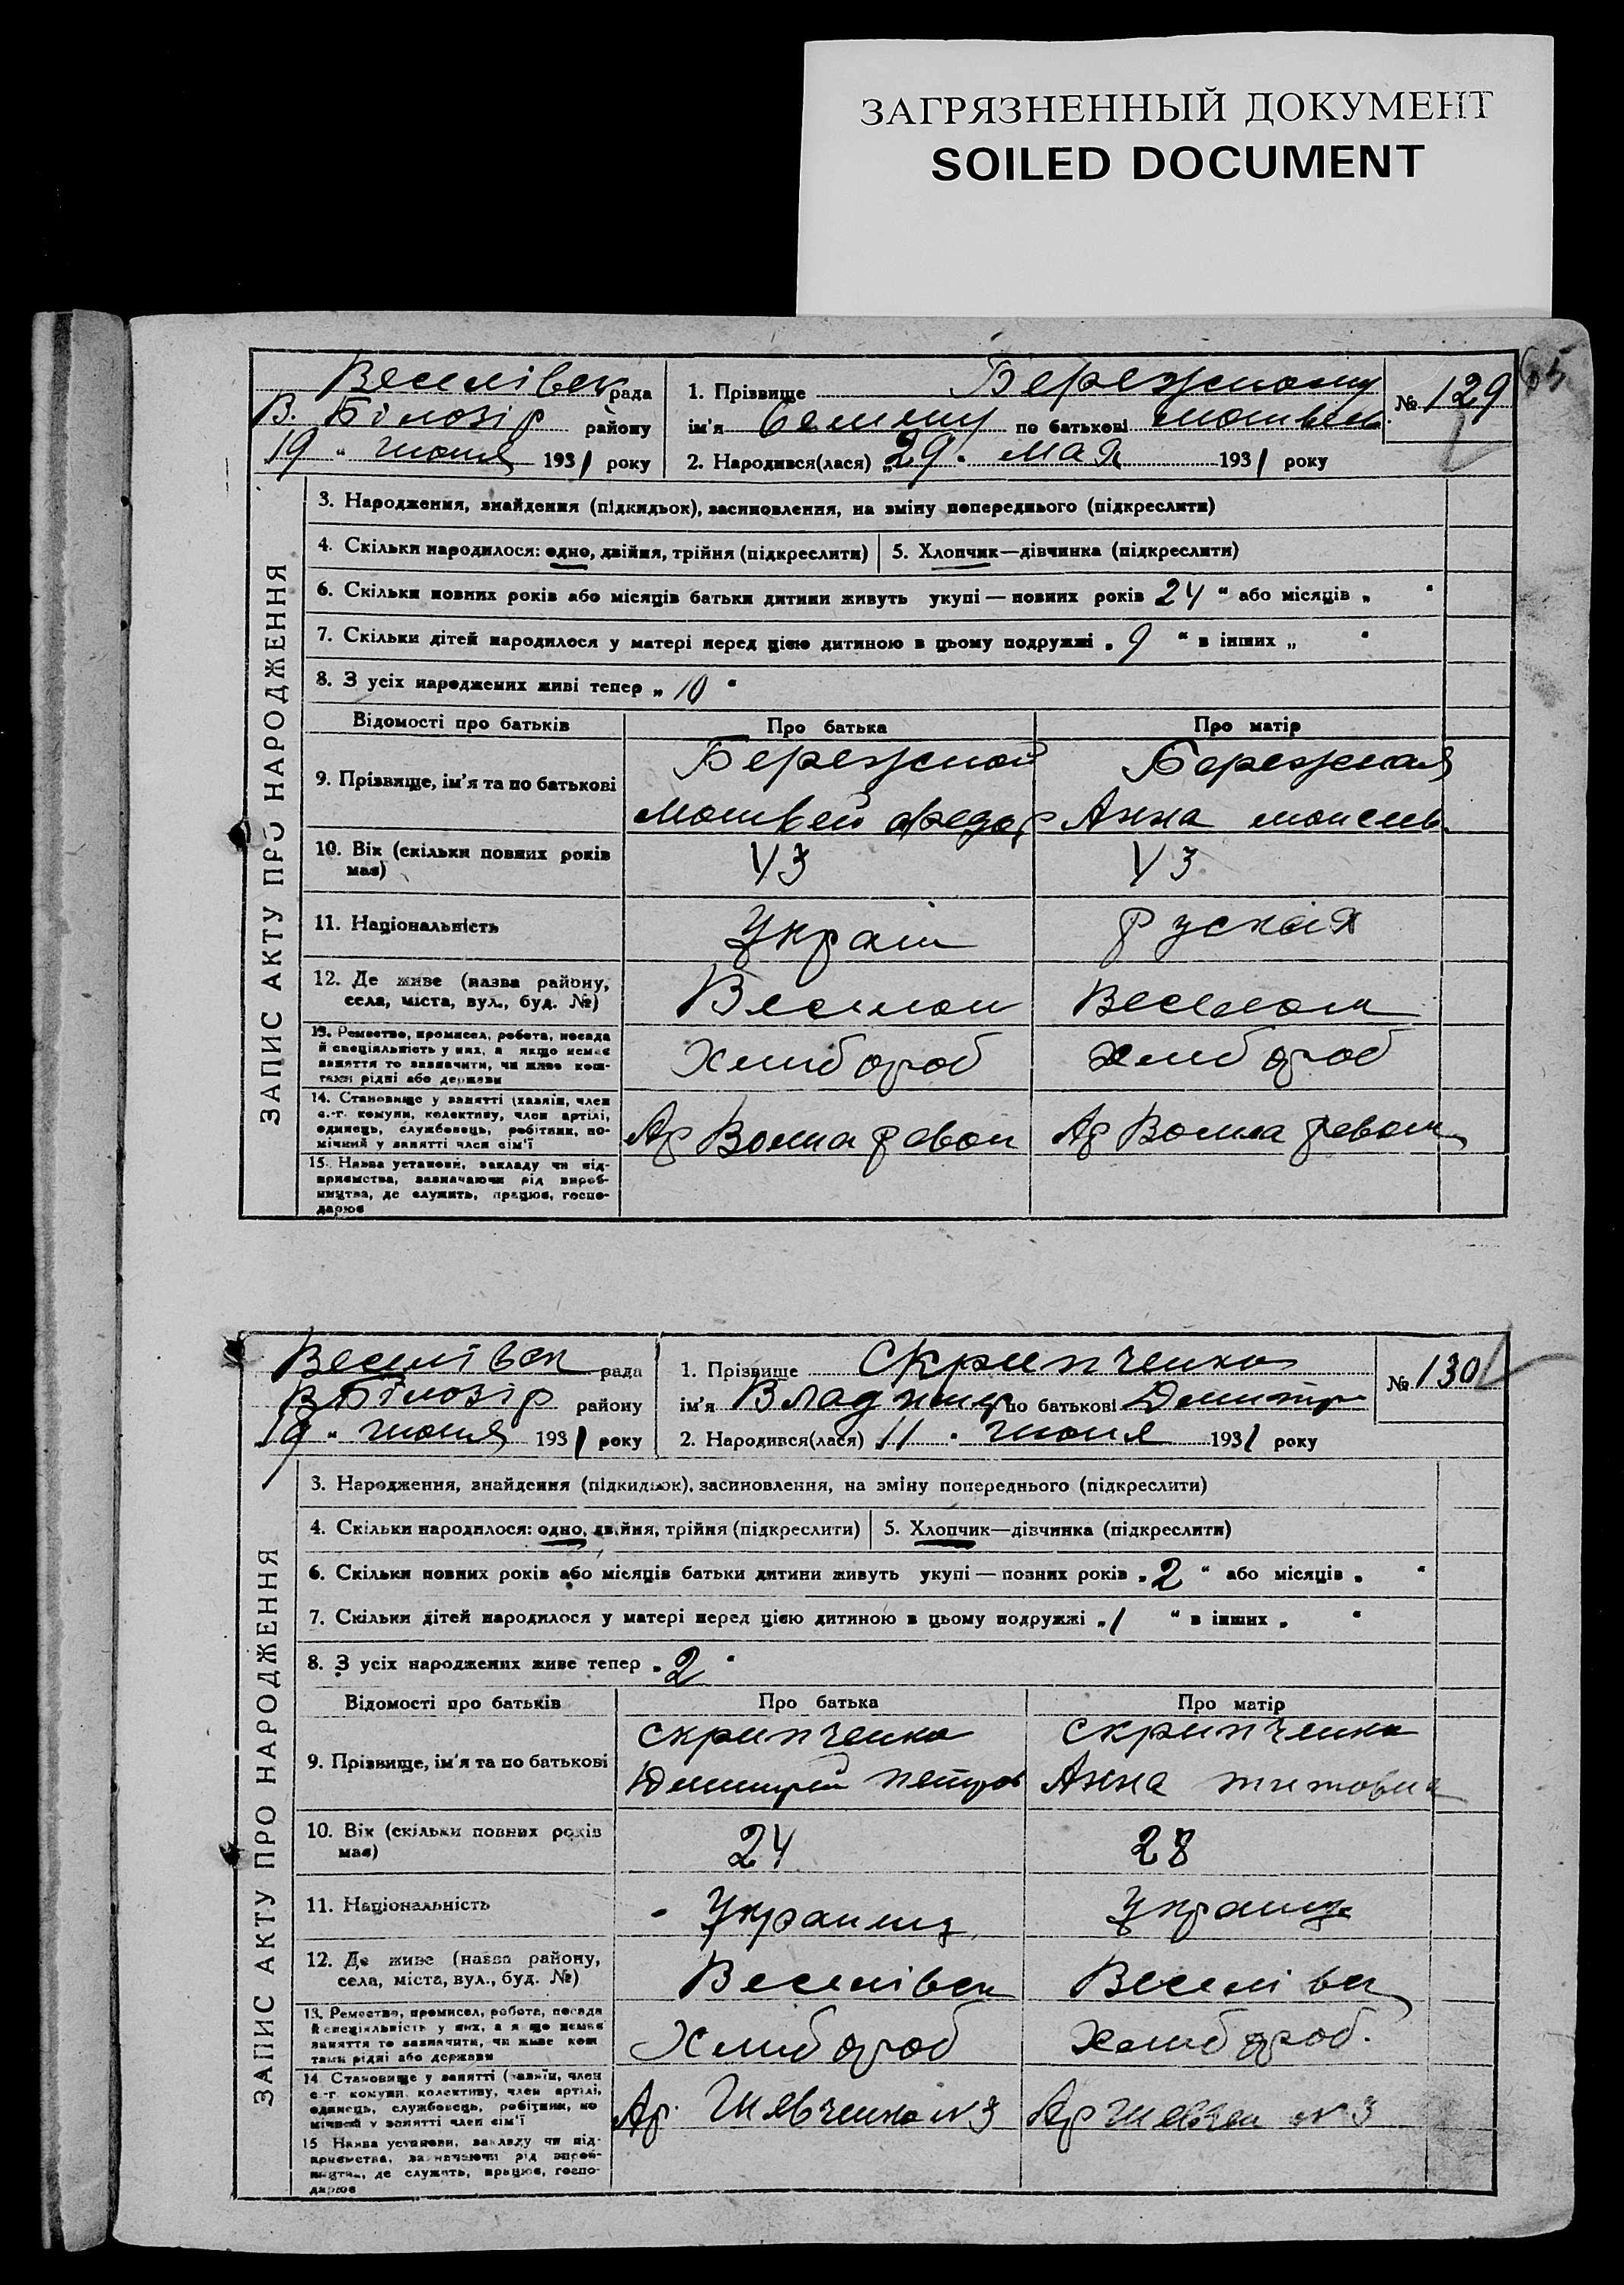 ЗАГРЯЗНЕННЫЙ ДОКУМЕНТ
SOILED DOCUMENT
65
Веселівск рада
В. Білозір району
19 " июня 1931 року
1. Прізвище Бережному
ім'я Семену по батькові матвеев.
2. Народився(лася) „29 " мая 1931 року
№ 129
ЗАПИС АКТУ ПРО НАРОДЖЕННЯ
3. Народження, знайдення (підкидьок), засиновлення, на зміну попереднього (підкреслити)
4. Скільки народилося: одно, двійня, трійня (підкреслити) 5. Хлопчик—дівчинка (підкреслити)
6. Скільки повних років або місяців батьки дитини живуть укупі — повних років 24 " або місяців „ "
7. Скільки дітей народилося у матері перед цією дитиною в цьому подружжі „ 9 " в інших „ "
8. З усіх народжених живі тепер „ 10 "
Відомості про батьків Про батька Про матір
9. Прізвище, ім'я та по батькові
Бережной
матвей федор
Бережная
Анна моисеев.
10. Вік (скільки повних років має) 43 43
11. Національність Украін руская
12. Де живе (назва району, села, міста, вул., буд. №) Веселом Веселом
13. Ремество, промисел, робота, посада й спеціяльність у них, а якщо немає заняття то зазначити, чи живе коштами рідні або держави Хлиб ороб хлиб ороб
14. Становище у занятті (хазяїн, член с.-г. комуни, колективу, член артілі, одинець, службовець, робітник, помічний у занятті член сім'ї Ар Волна револ Ар Волна револ
15. Назва установи, закладу чи підприємства, зазначаючи рід виробництва, де служить, працює, господарює
Веселівск рада
В Білозір району
19 " июня 1931 року
1. Прізвище Скрипченко
ім'я Владимир по батькові Дмитр
2. Народився(лася) 11 " июня 1931 року
№ 130
ЗАПИС АКТУ ПРО НАРОДЖЕННЯ
3. Народження, знайдення (підкидьок), засиновлення, на зміну попереднього (підкреслити)
4. Скільки народилося: одно, двійня, трійня (підкреслити) 5. Хлопчик—дівчинка (підкреслити)
6. Скільки повних років або місяців батьки дитини живуть укупі — повних років „ 2 " або місяців „ "
7. Скільки дітей народилося у матері перед цією дитиною в цьому подружжі „ 1 " в інших „ "
8. З усіх народжених живе тепер „ 2 "
Відомості про батьків Про батька Про матір
9. Прізвище, ім'я та по батькові
скрипченко
Дмитрий петров
скрипченко
Анна титовна
10. Вік (скільки повних років має) 24 28
11. Національність Украинц Украинц
12. Де живе (назва району, села, міста, вул., буд. №) Веселівск Веселівск
13. Ремество, промисел, робота, посада й спеціяльність у них, а якщо немає заняття то зазначити, чи живе коштами рідні або держави Хлиб ороб хлиб ороб.
14. Становище у занятті (хазяїн, член с.-г. комуни, колективу, член артілі, одинець, службовець, робітник, помічний у занятті член сім'ї Ар. Шевченко №3 Ар Шевчен №3
15. Назва установи, закладу чи підприємства, зазначаючи рід виробництва, де служить, працює, господарює